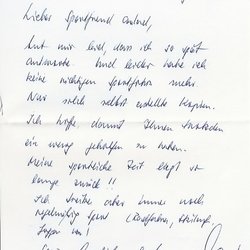 Lieber Sportfreund
tut mir leid, dass ich so spät
antworte. Und leider habe ich
keine richtigen Sportfotos mehr.
Nur solch selbst erstellte Karten.
Ich hoffe, damit Ihnen trotzdem
ein wenig geholfen zu haben.
Meine sportliche Zeit liegt so
lange zurück!!
Ich treibe aber immer noch
regelmäßig Sport (Radfahren,